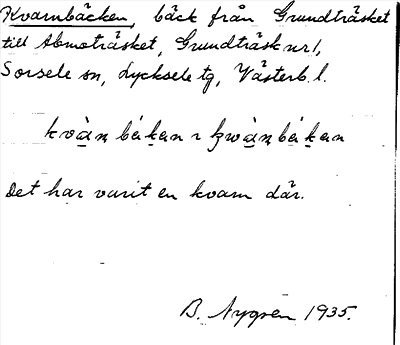 Kvarnbäcken, bäck från Grundträsket
till Abmoträsket, Grundträsk nr 1,
Sorsele sn, Lycksele tg, Västerb. l.
Det har varit en kvarn där.
B. Nygren 1935.